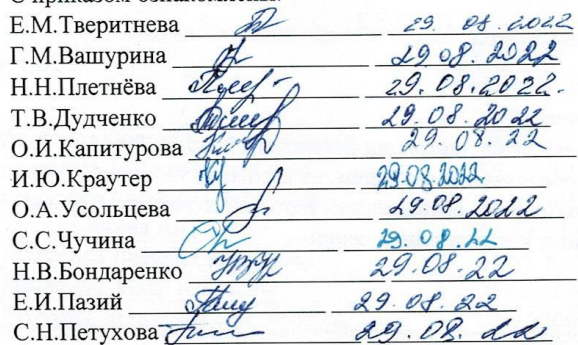 С приказом ознакомлены:
Е.М.Тверитнева 29. 08. 2022
Г.М.Вашурина 29.08.2022
Н.Н.Плетнёва 29.08.2022.
Т.В.Дудченко 29.08.2022
О.И.Капитурова 29.08.22
И.Ю.Краутер 29.08.2022
О.А.Усольцева 29.08.2022
С.С.Чучина 29.08.22
Н.В.Бондаренко 29.08.22
Е.И.Пазий 29.08.22
С.Н.Петухова 29.08.22